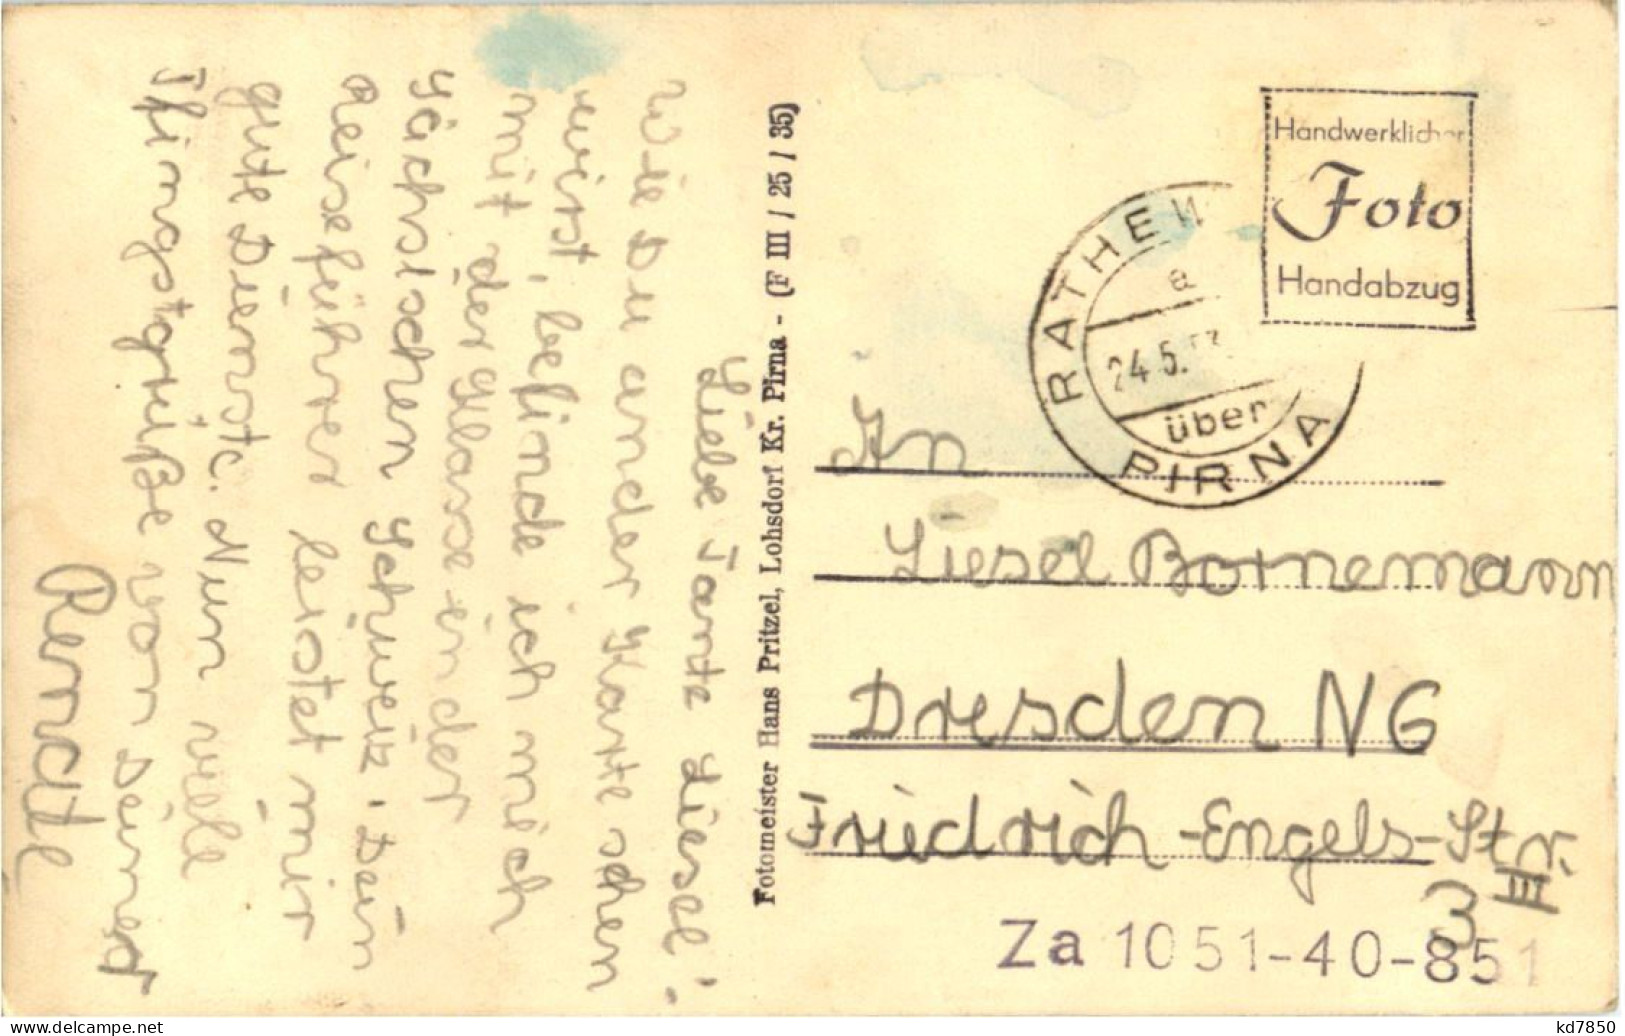 Liebe Tante Liesel!
Wie Du an der Karte schon
wirst, befinde ich mich
mit der Klasse in der
Sächsischen Schweiz. Dein
Reiseführer leistet mir
gute Dienste. Nun viele
Pfingstgrüße von Deiner
Renate
Fotomeister Hans Pritzel, Lohsdorf Kr. Pirna - (F III / 25 / 35)
Handwerklicher
Foto
Handabzug
RATHEN
a
24.5.53
über
PIRNA
An
Liesel Bornemann
Dresden N6
Friedrich-Engels-Str.
3 III
Za 1051-40-851
kd7850